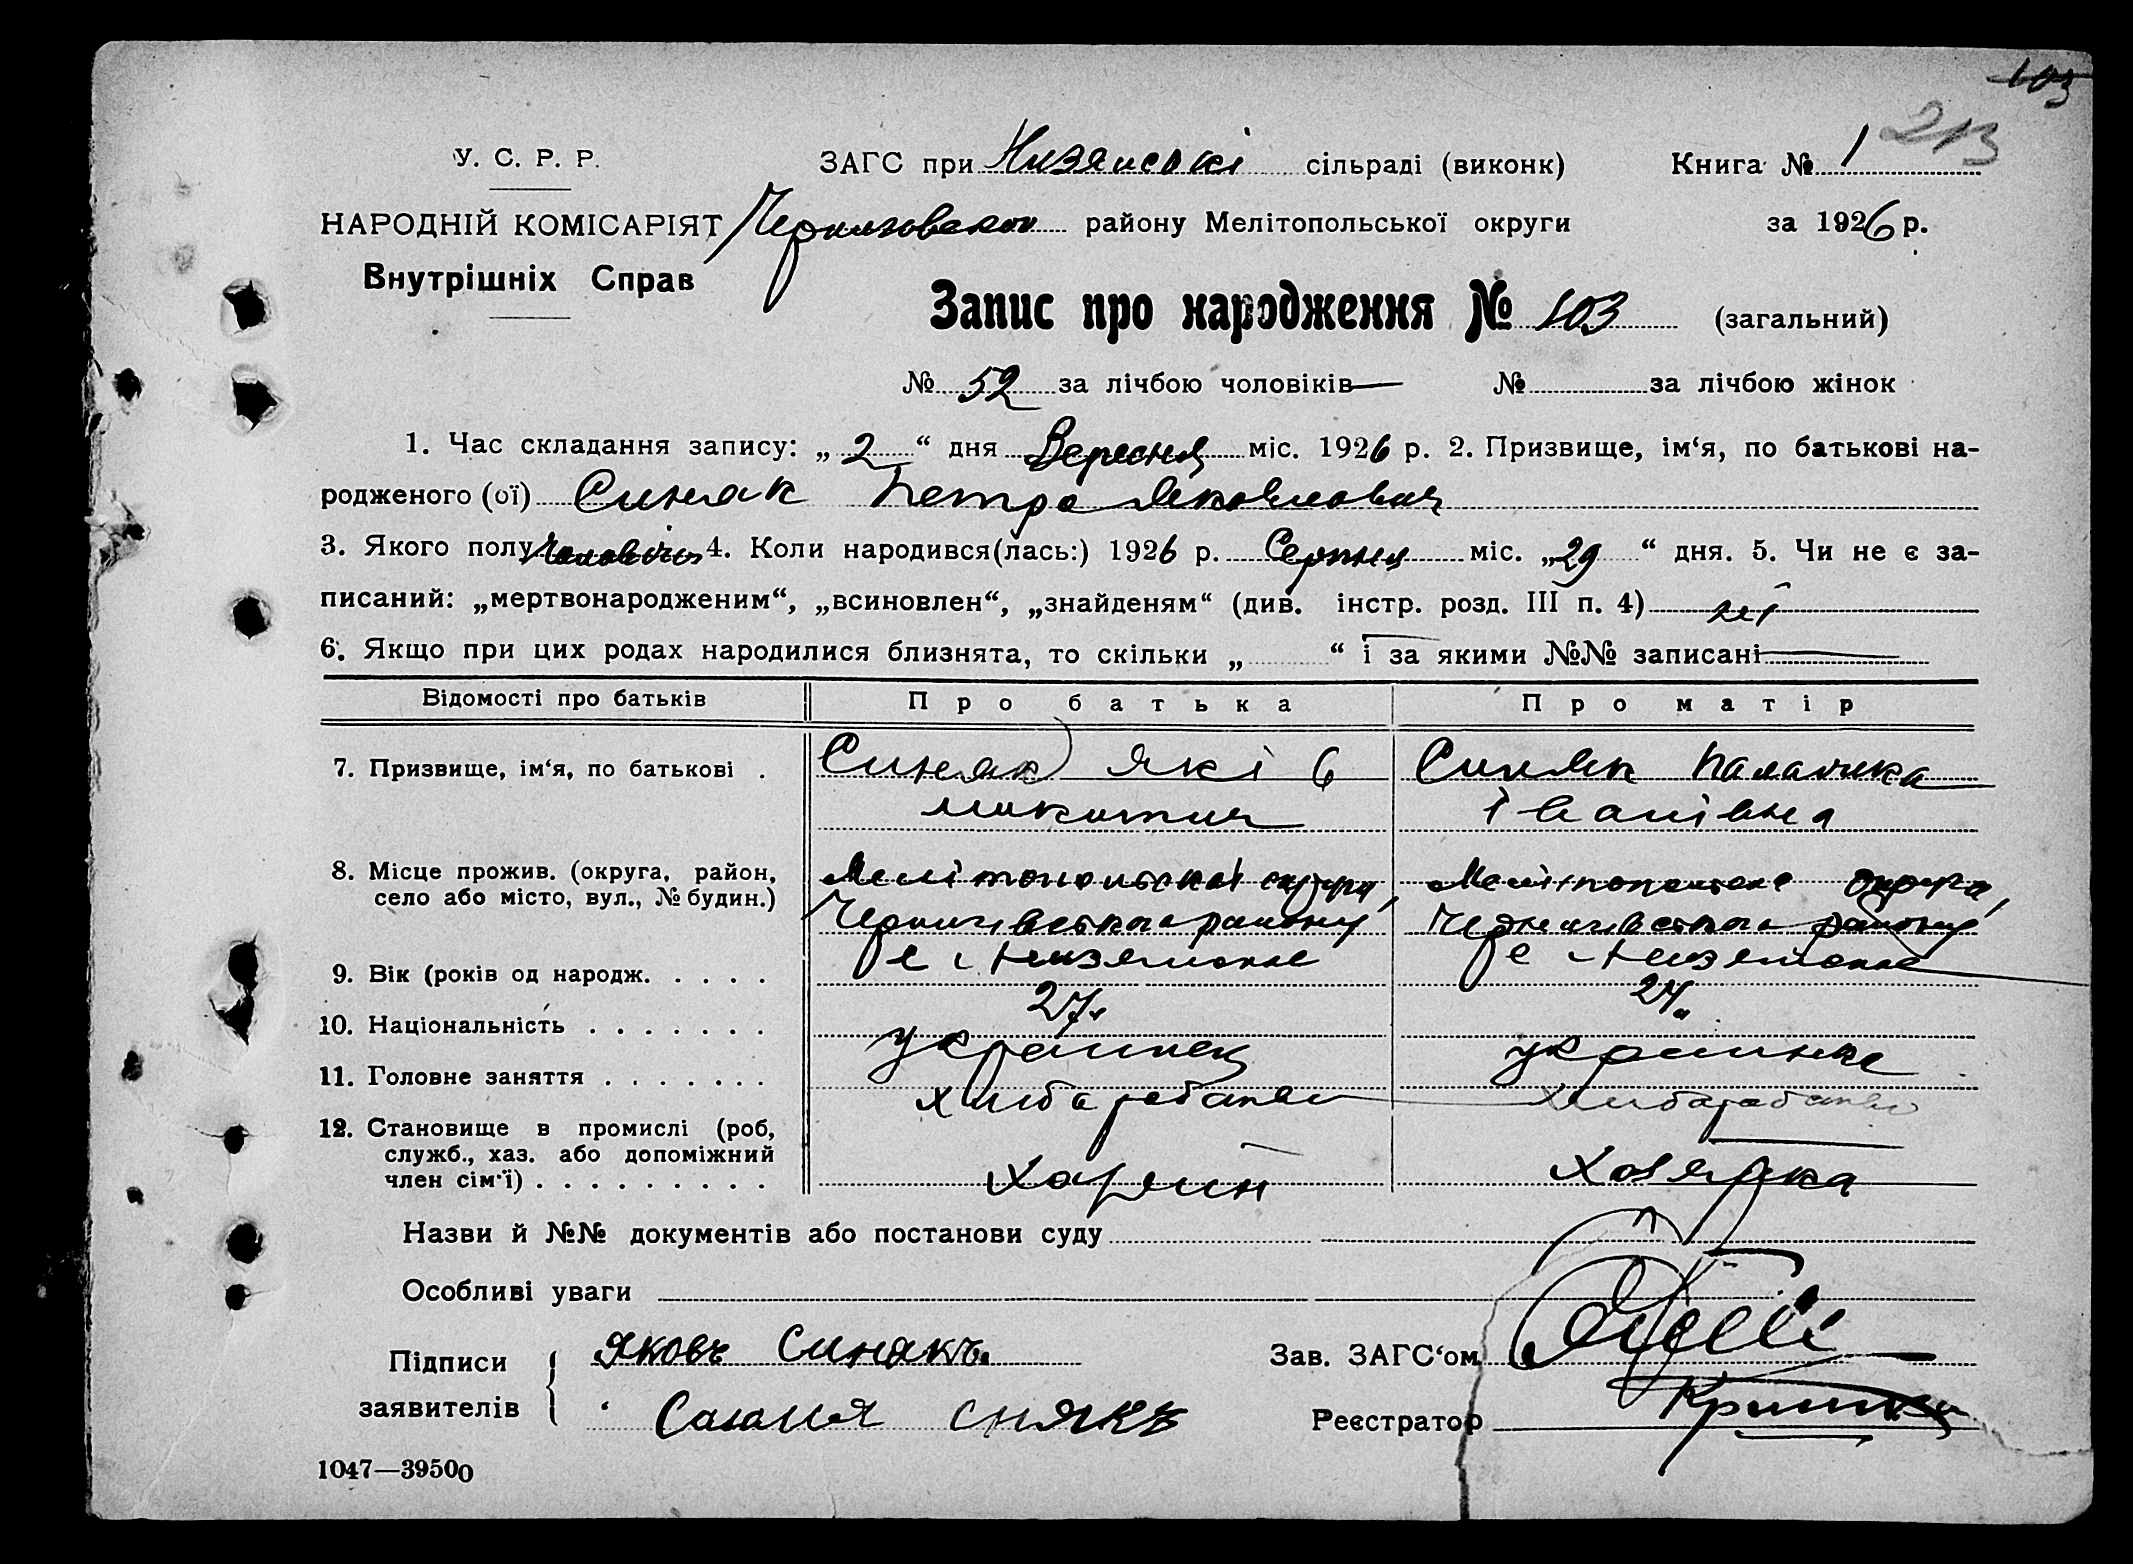 103
213
У. С. Р. Р.
ЗАГС при Низянські сільраді (виконк) Книга № 1
НАРОДНІЙ КОМІСАРІЯТ району Мелітопольської округи за 1926 р.
Внутрішніх Справ
Запис про народження № 103 (загальний)
№ 52 за лічбою чоловіків — № за лічбою жінок
1. Час складання запису: „ 2 “ дня Вересня міс. 1926 р. 2. Призвище, ім‘я, по батькові на-
родженого (ої) Синяк Петро Яковлевич
3. Якого полу 4. Коли народився(лась:) 1926 р. Серпня міс. „29 “ дня. 5. Чи не є за-
писаний: „мертвонародженим“, „всиновлен“, „знайденям“ (див. інстр. розд. III п. 4) ні
6. Якщо при цих родах народилися близнята, то скільки „ — “ і за якими №№ записані —
Відомості про батьків Про батька Про матір
7. Призвище, ім‘я, по батькові . Синяк Які в Синяк Палажка
микитич Іванівна
8. Місце прожив. (округа, район, Мелітопольської округи, Мелітопольська округа,
село або місто, вул., № будин.) Чернигівського району Чернигівського району
9. Вік (років од народж. . . . .
27 24
10. Національність . . . . . . .
украинец украинка
11. Головне заняття . . . . . . .
12. Становище в промислі (роб,
служб., хаз. або допоміжний
член сім‘ї) . . . . . . . . . Хозяйка
Назви й №№ документів або постанови суду
Особливі уваги
Підписи Яковъ Синякъ Зав. ЗАГС‘ом
заявителів Реєстратор
1047—39500